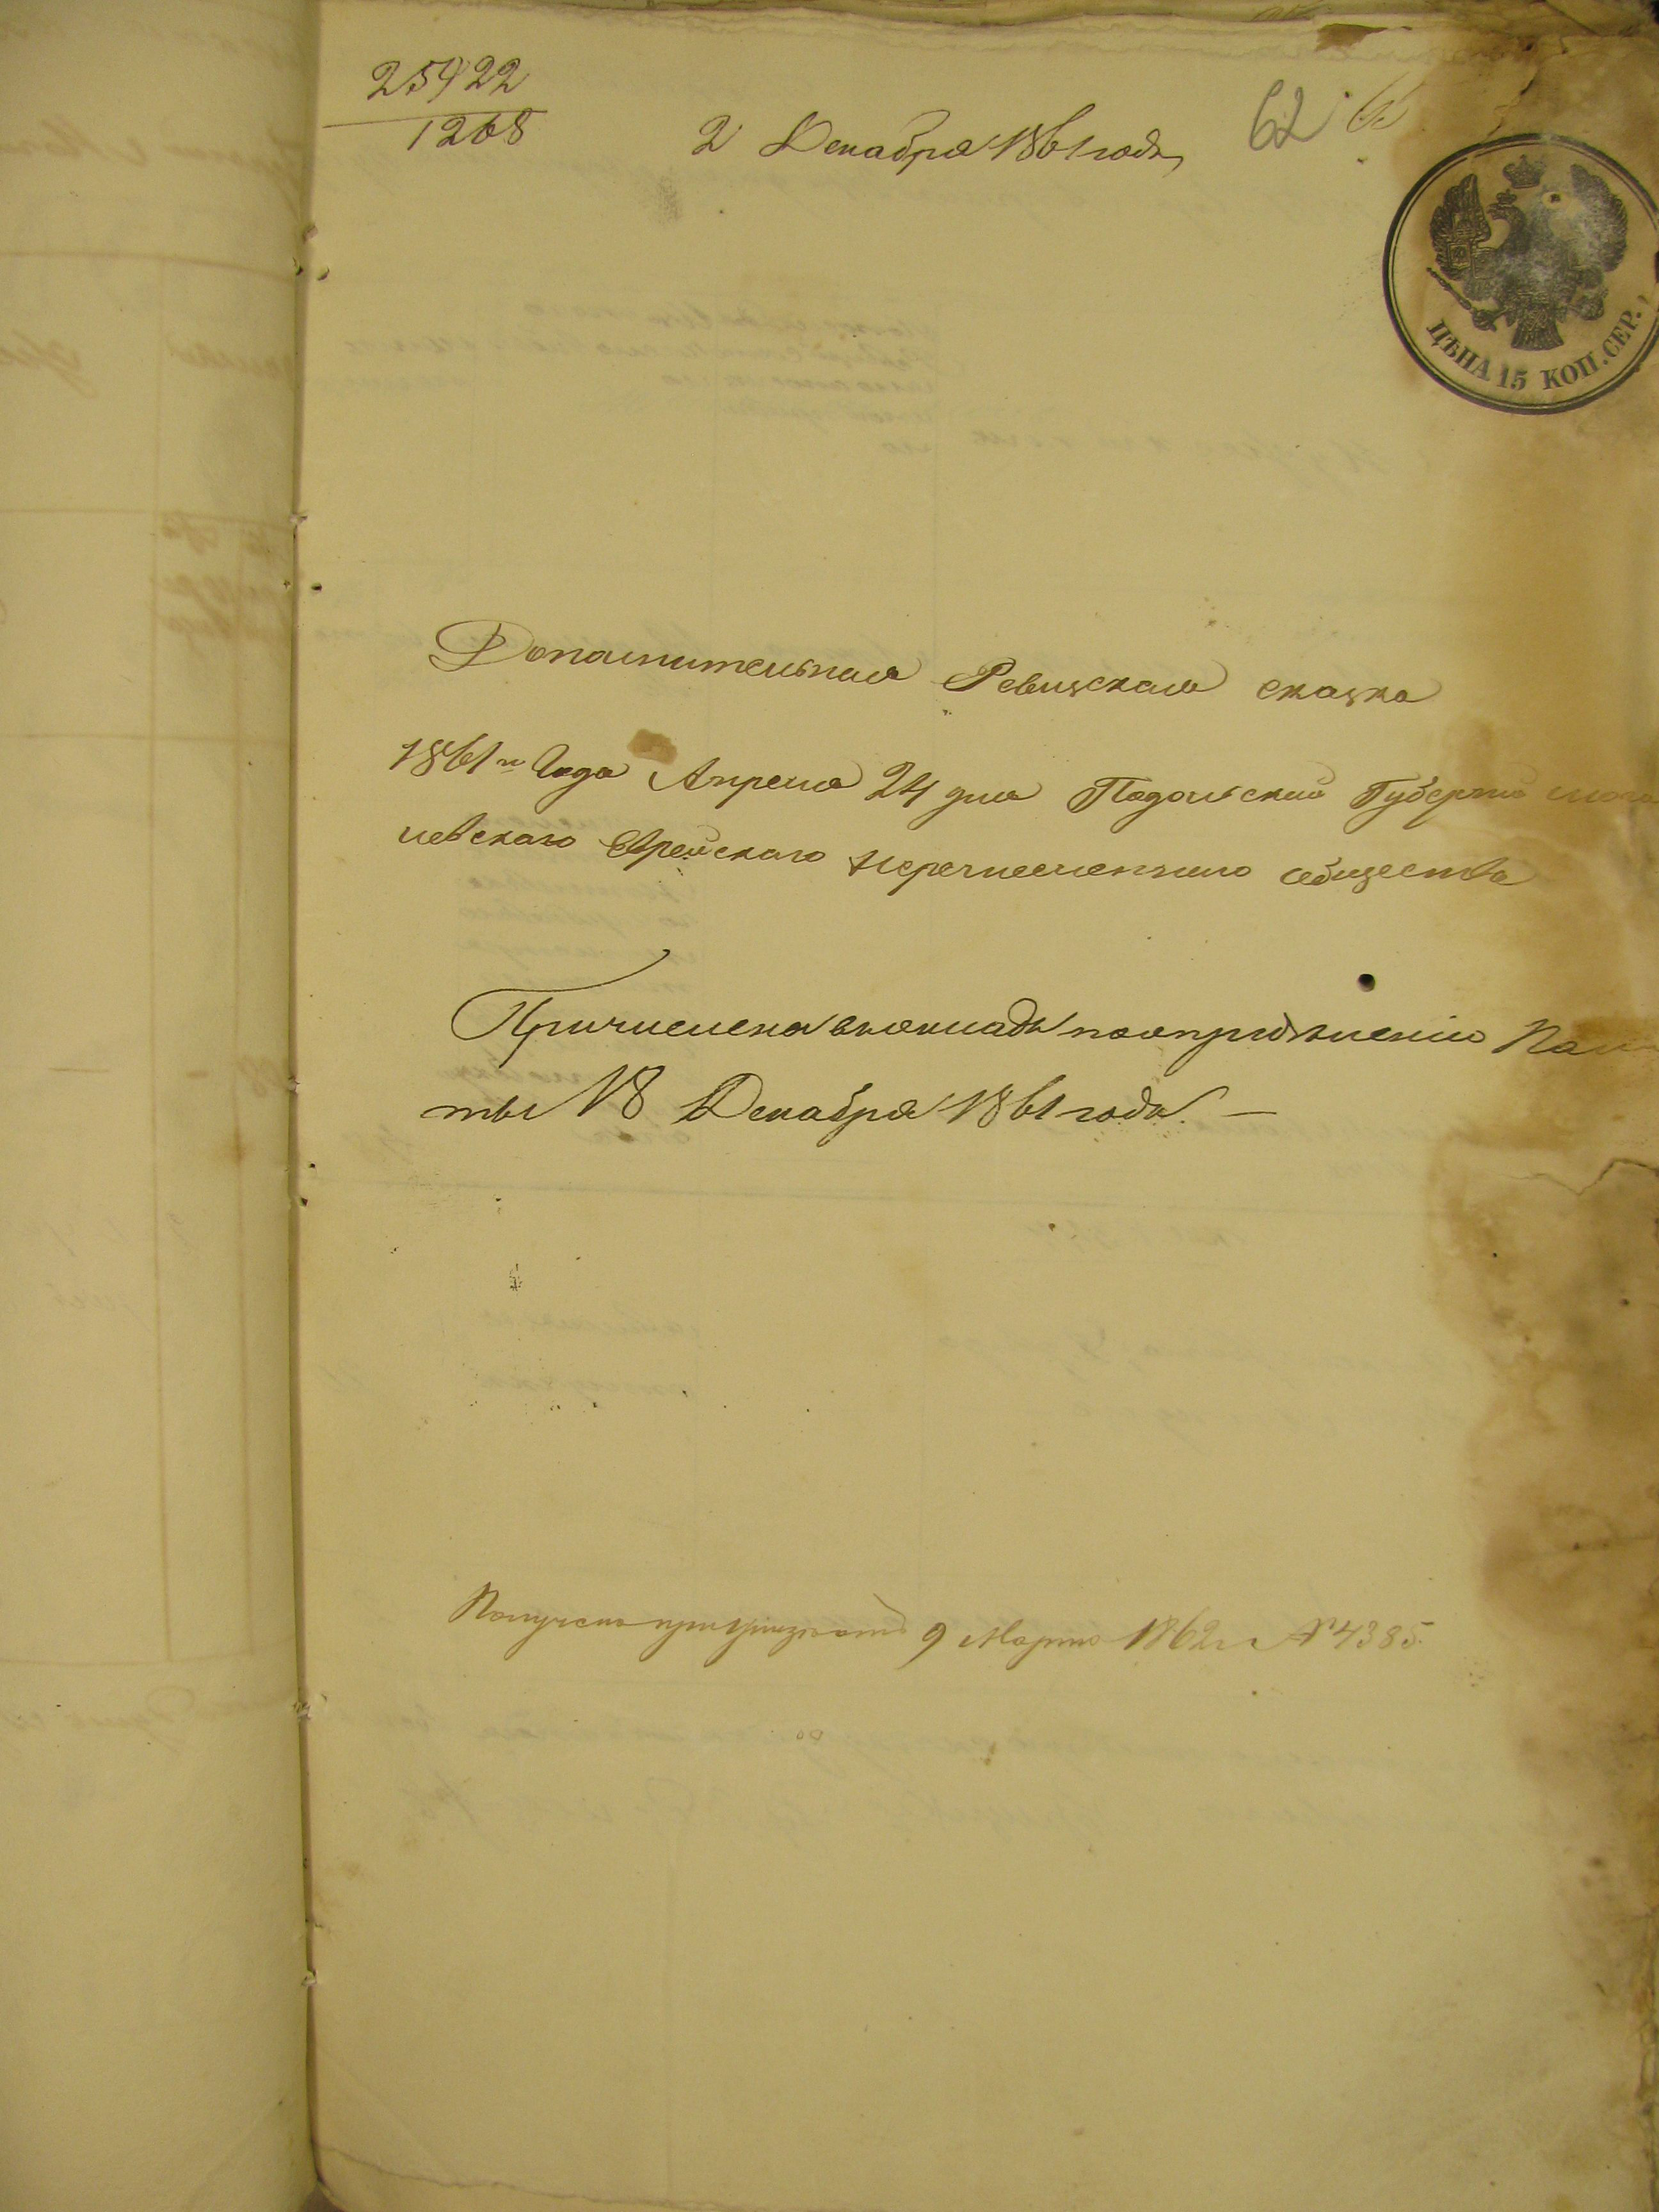 25922
1268
2 Декабря 1861 года
62
ЦѢНА 15 КОП. СЕР.
Дополнительная Ревизская сказка
1861го Года Апреля 24 дня Подольской Губернии Моги
левскаго Еврейскаго перечисленнаго общества
Причислена окладъ Пала
ты 18 Декабря 1861 года. —
Получена при указѣ 9 Марта 1862 г. № 4385.